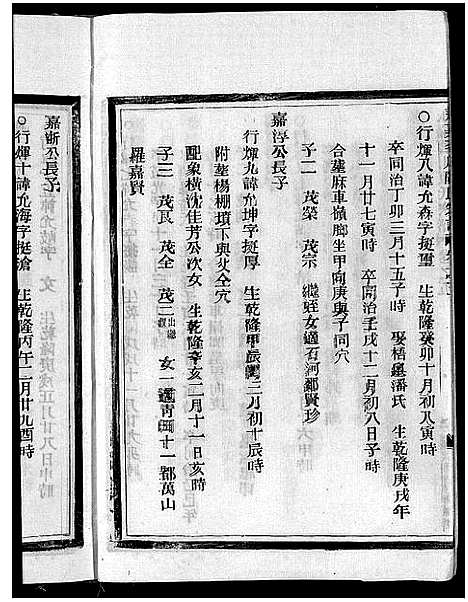 ○行輝八諱允森字挺璽 生乾隆癸卯十月初八寅時
卒同治丁卯三月十五子時 娶梧 潘氏 生乾隆庚戌年
十一月廿七寅時 卒同治壬戌十一月初八日子時
合塟麻車嶺脚坐甲向庚與子同穴
子二 茂榮 茂宗 繼姪女適石河鄒賢珍
嘉渟公長子
行輝九諱允坤字挺厚 生乾隆甲辰 三月初十辰時
附塟楊棚墳下與父仝穴
配象橫沈佳芳公次女 生乾隆辛亥二月十一日亥時
子三 茂艮 茂全 茂二出繼 女一適青田十一都萬山
羅嘉賢
嘉 公長子
○行輝十諱允海字挺滄 生乾隆丙午二月廿九酉時